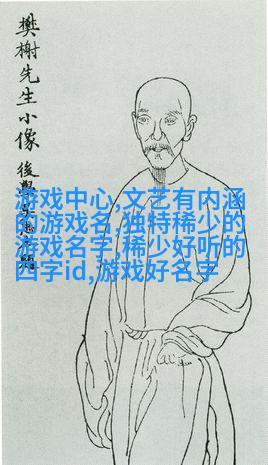 樊榭先生小像
後學
游戏中心,文艺有内涵
的游戏名,独特稀少的
游戏名字,稀少好听的
四字id,游戏好名字